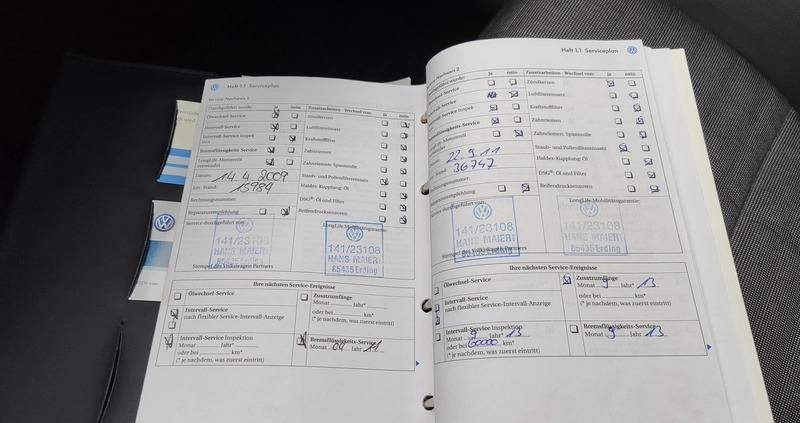 Heft 1.1 Serviceplan
Service-Nachweis 1
Durchgeführt wurde: ja nein
Ölwechsel-Service
Intervall-Service
Intervall-Service Inspek-
tion
Bremsflüssigkeits-Service
LongLife-Motorenöl
verwendet
Datum: 14.4.2009
km-Stand: 15984
Rechnungsnummer:
Reparaturempfehlung
Zusatzarbeiten - Wechsel von: ja nein
Zündkerzen
Luftfiltereinsatz
Kraftstofffilter
Zahnriemen
Zahnriemen-Spannrolle
Staub- und Pollenfiltereinsatz
Haldex-Kupplung: Öl
DSG®: Öl und Filter
Reifendrucksensoren
Service durchgeführt von:
LongLife Mobilitätsgarantie:
141/23108
HANS MAIER
85435 Erding
141/23108
HANS MAIER
85435 Erding
Stempel des Volkswagen Partners
Ihre nächsten Service-Ereignisse
Ölwechsel-Service
Intervall-Service
nach flexibler Service-Intervall-Anzeige
Intervall-Service Inspektion
Monat Jahr*
oder bei km*
(* je nachdem, was zuerst eintritt)
Zusatzumfänge
Monat Jahr*
oder bei km*
(* je nachdem, was zuerst eintritt)
Bremsflüssigkeits-Service
Monat 04 Jahr 11
Heft 1.1 Serviceplan
Nachweis 2
ja nein
Zusatzarbeiten - Wechsel von: ja nein
Zündkerzen
Luftfiltereinsatz
Kraftstofffilter
Zahnriemen
Zahnriemen-Spannrolle
Staub- und Pollenfiltereinsatz
Haldex-Kupplung: Öl
DSG®: Öl und Filter
Reifendrucksensoren
22.9.11
36747
LongLife Mobilitätsgarantie:
141/23108
HANS MAIER
85435 Erding
141/23108
HANS MAIER
85435 Erding
Stempel des Volkswagen Partners
Ihre nächsten Service-Ereignisse
Ölwechsel-Service
Intervall-Service
nach flexibler Service-Intervall-Anzeige
Intervall-Service Inspektion
Monat 9 Jahr* 13
oder bei 60000 km*
(* je nachdem, was zuerst eintritt)
Zusatzumfänge
Monat 9 Jahr* 13
oder bei km*
(* je nachdem, was zuerst eintritt)
Bremsflüssigkeits-Service
Monat 9 Jahr 13